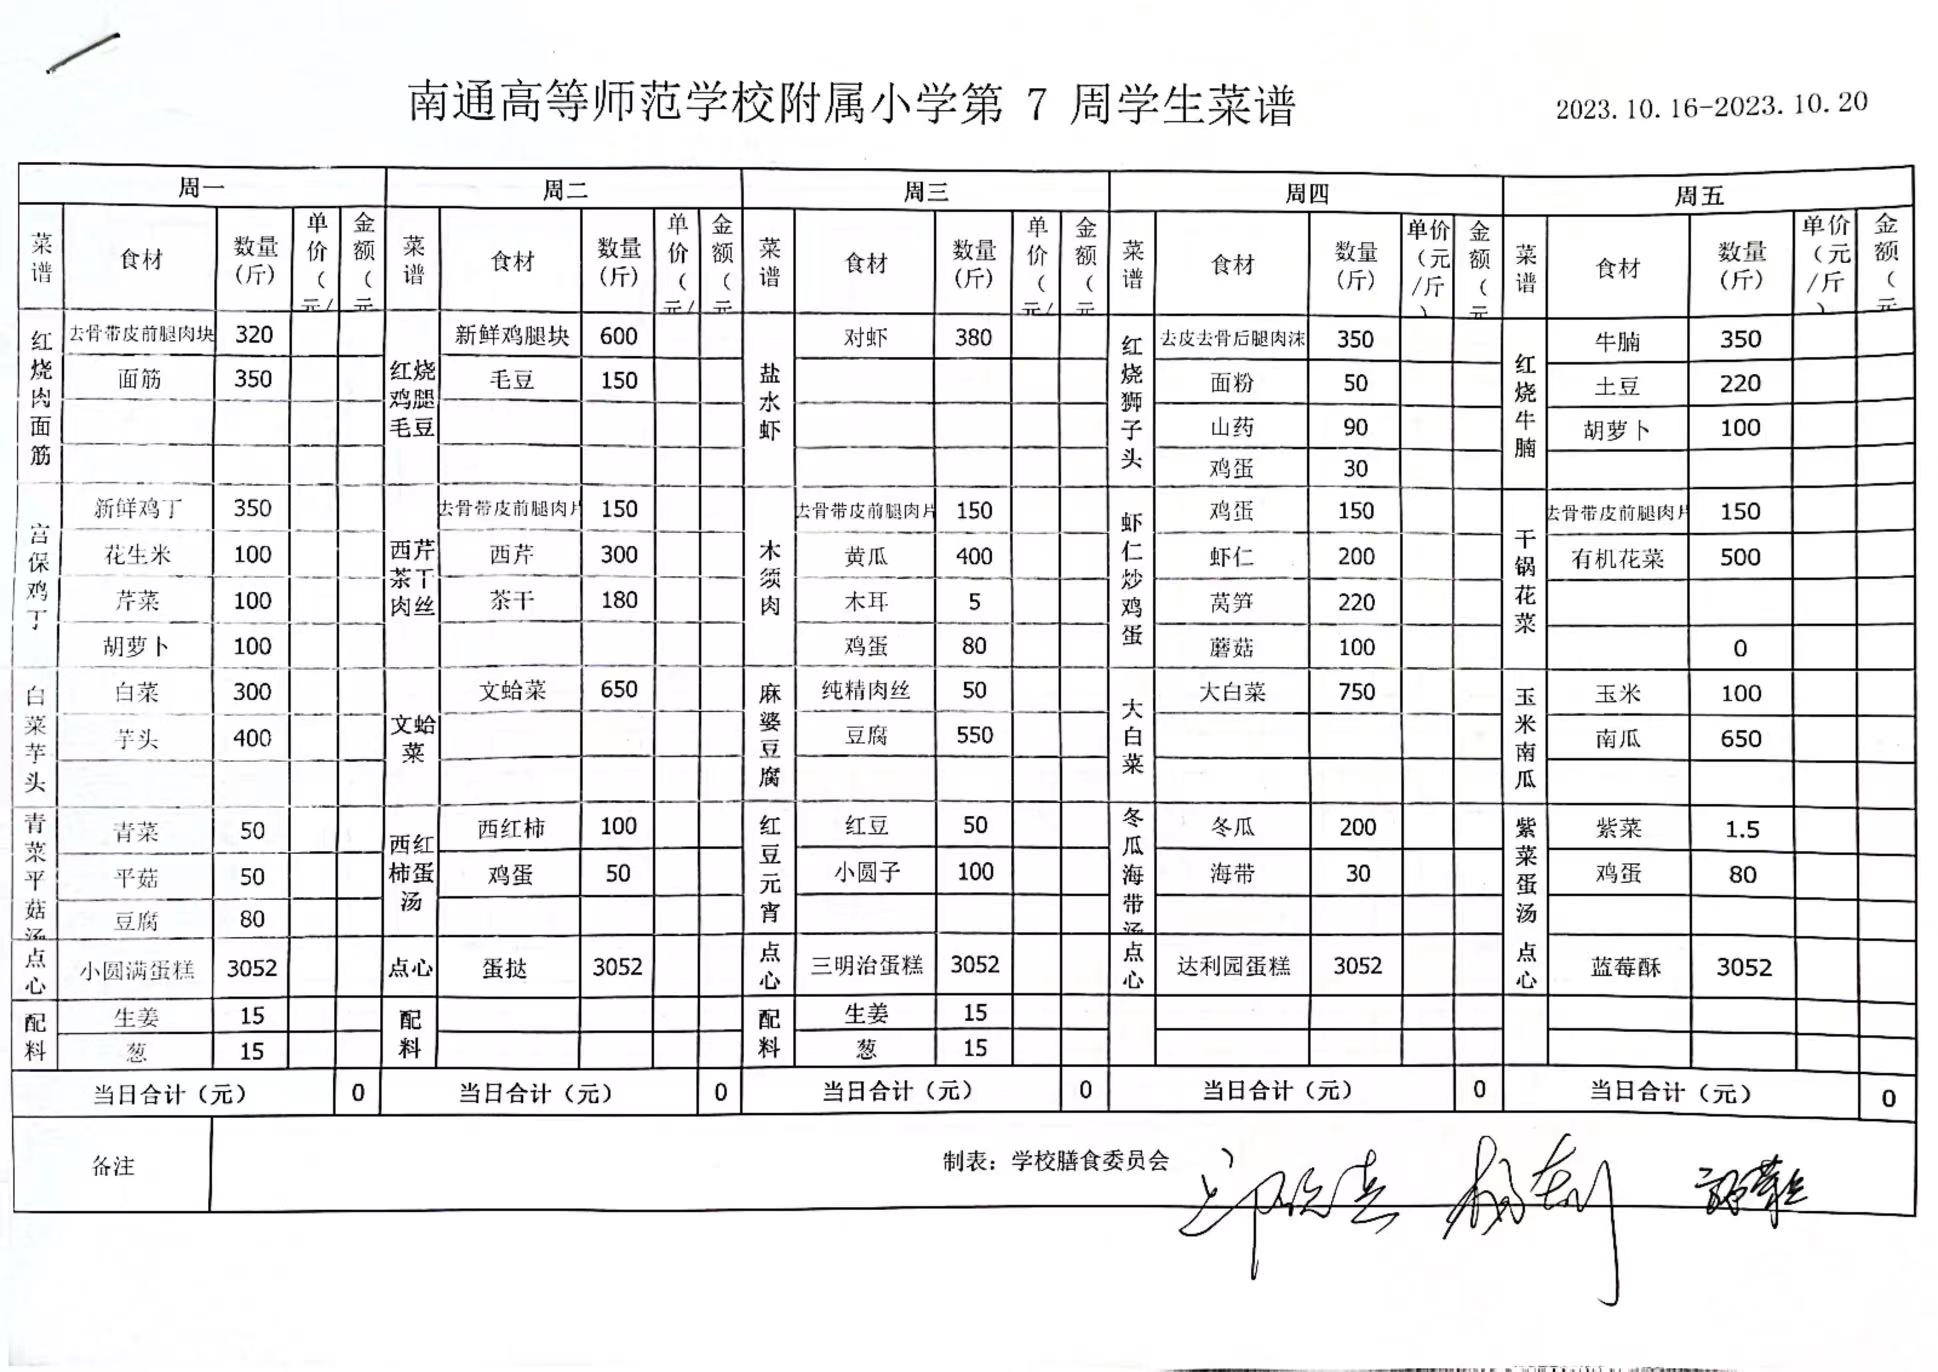 南通高等师范学校附属小学第 7 周学生菜谱
2023.10.16-2023.10.20
周一 周二 周三 周四 周五
菜谱 食材 数量(斤) 单价(元/ 金额(元 菜谱 食材 数量(斤) 单价(元/ 金额(元 菜谱 食材 数量(斤) 单价(元/ 金额(元 菜谱 食材 数量(斤) 单价(元/斤) 金额(元 菜谱 食材 数量(斤) 单价(元/斤) 金额(元
红烧肉面筋 去骨带皮前腿肉块 320 红烧鸡腿毛豆 新鲜鸡腿块 600 盐水虾 对虾 380 红烧狮子头 去皮去骨后腿肉沫 350 红烧牛腩 牛腩 350
面筋 350 毛豆 150 面粉 50 土豆 220
山药 90 胡萝卜 100
鸡蛋 30
宫保鸡丁 新鲜鸡丁 350 西芹茶干肉丝 去骨带皮前腿肉片 150 木须肉 去骨带皮前腿肉片 150 虾仁炒鸡蛋 鸡蛋 150 干锅花菜 去骨带皮前腿肉片 150
花生米 100 西芹 300 黄瓜 400 虾仁 200 有机花菜 500
芹菜 100 茶干 180 木耳 5 莴笋 220
胡萝卜 100 鸡蛋 80 蘑菇 100 0
白菜芋头 白菜 300 文蛤菜 文蛤菜 650 麻婆豆腐 纯精肉丝 50 大白菜 大白菜 750 玉米南瓜 玉米 100
芋头 400 豆腐 550 南瓜 650
青菜平菇汤 青菜 50 西红柿蛋汤 西红柿 100 红豆元宵 红豆 50 冬瓜海带汤 冬瓜 200 紫菜蛋汤 紫菜 1.5
平菇 50 鸡蛋 50 小圆子 100 海带 30 鸡蛋 80
豆腐 80
点心 小圆满蛋糕 3052 点心 蛋挞 3052 点心 三明治蛋糕 3052 点心 达利园蛋糕 3052 点心 蓝莓酥 3052
配料 生姜 15 配料 配料 生姜 15
葱 15 葱 15
当日合计（元） 0 当日合计（元） 0 当日合计（元） 0 当日合计（元） 0 当日合计（元） 0
备注 制表：学校膳食委员会